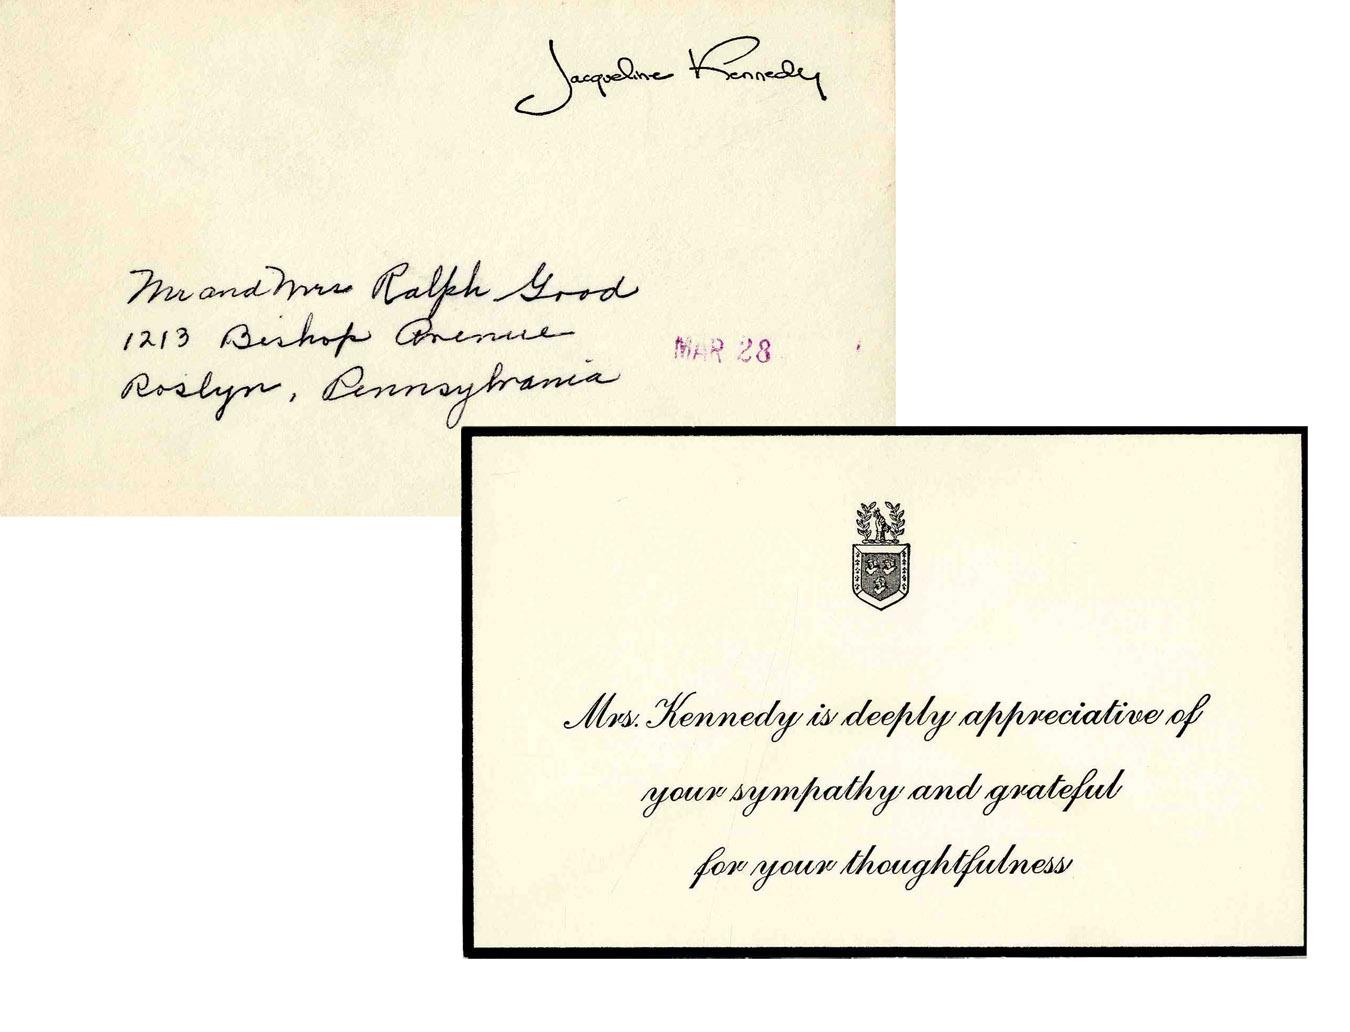 Jacqueline Kennedy
Mr and Mrs Ralph Good
1213 Bishop Avenue
Roslyn, Pennsylvania
MAR 28
Mrs. Kennedy is deeply appreciative of
your sympathy and grateful
for your thoughtfulness